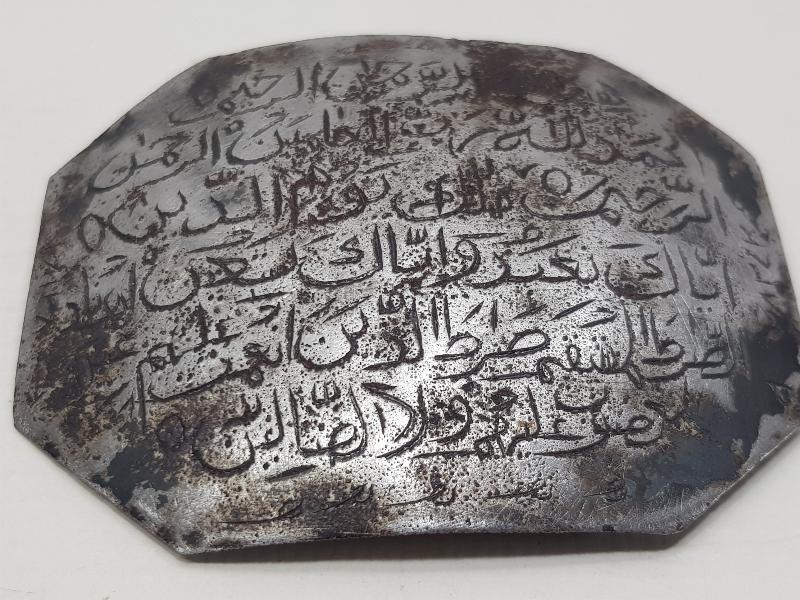 الرحمن الرحيم
لحمد لله رب العالمين الرحمن
الرحيم ملك يوم الدين ه
اياك نعبد واياك نستعين اهدنا
الصراط المستقيم صراط الذين انعمت عليهم
ضوب عليهم ولا الضالين ه